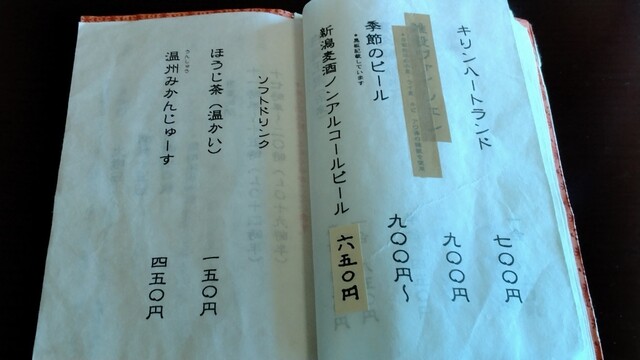 キリンハートランド
七〇〇円
九〇〇円
季節のビール
●黒板記載しています
九〇〇円〜
新潟麦酒ノンアルコールビール
六五〇円
ソフトドリンク
ほうじ茶（温かい）
一五〇円
温州みかんじゅーす
うんしゅう
四五〇円